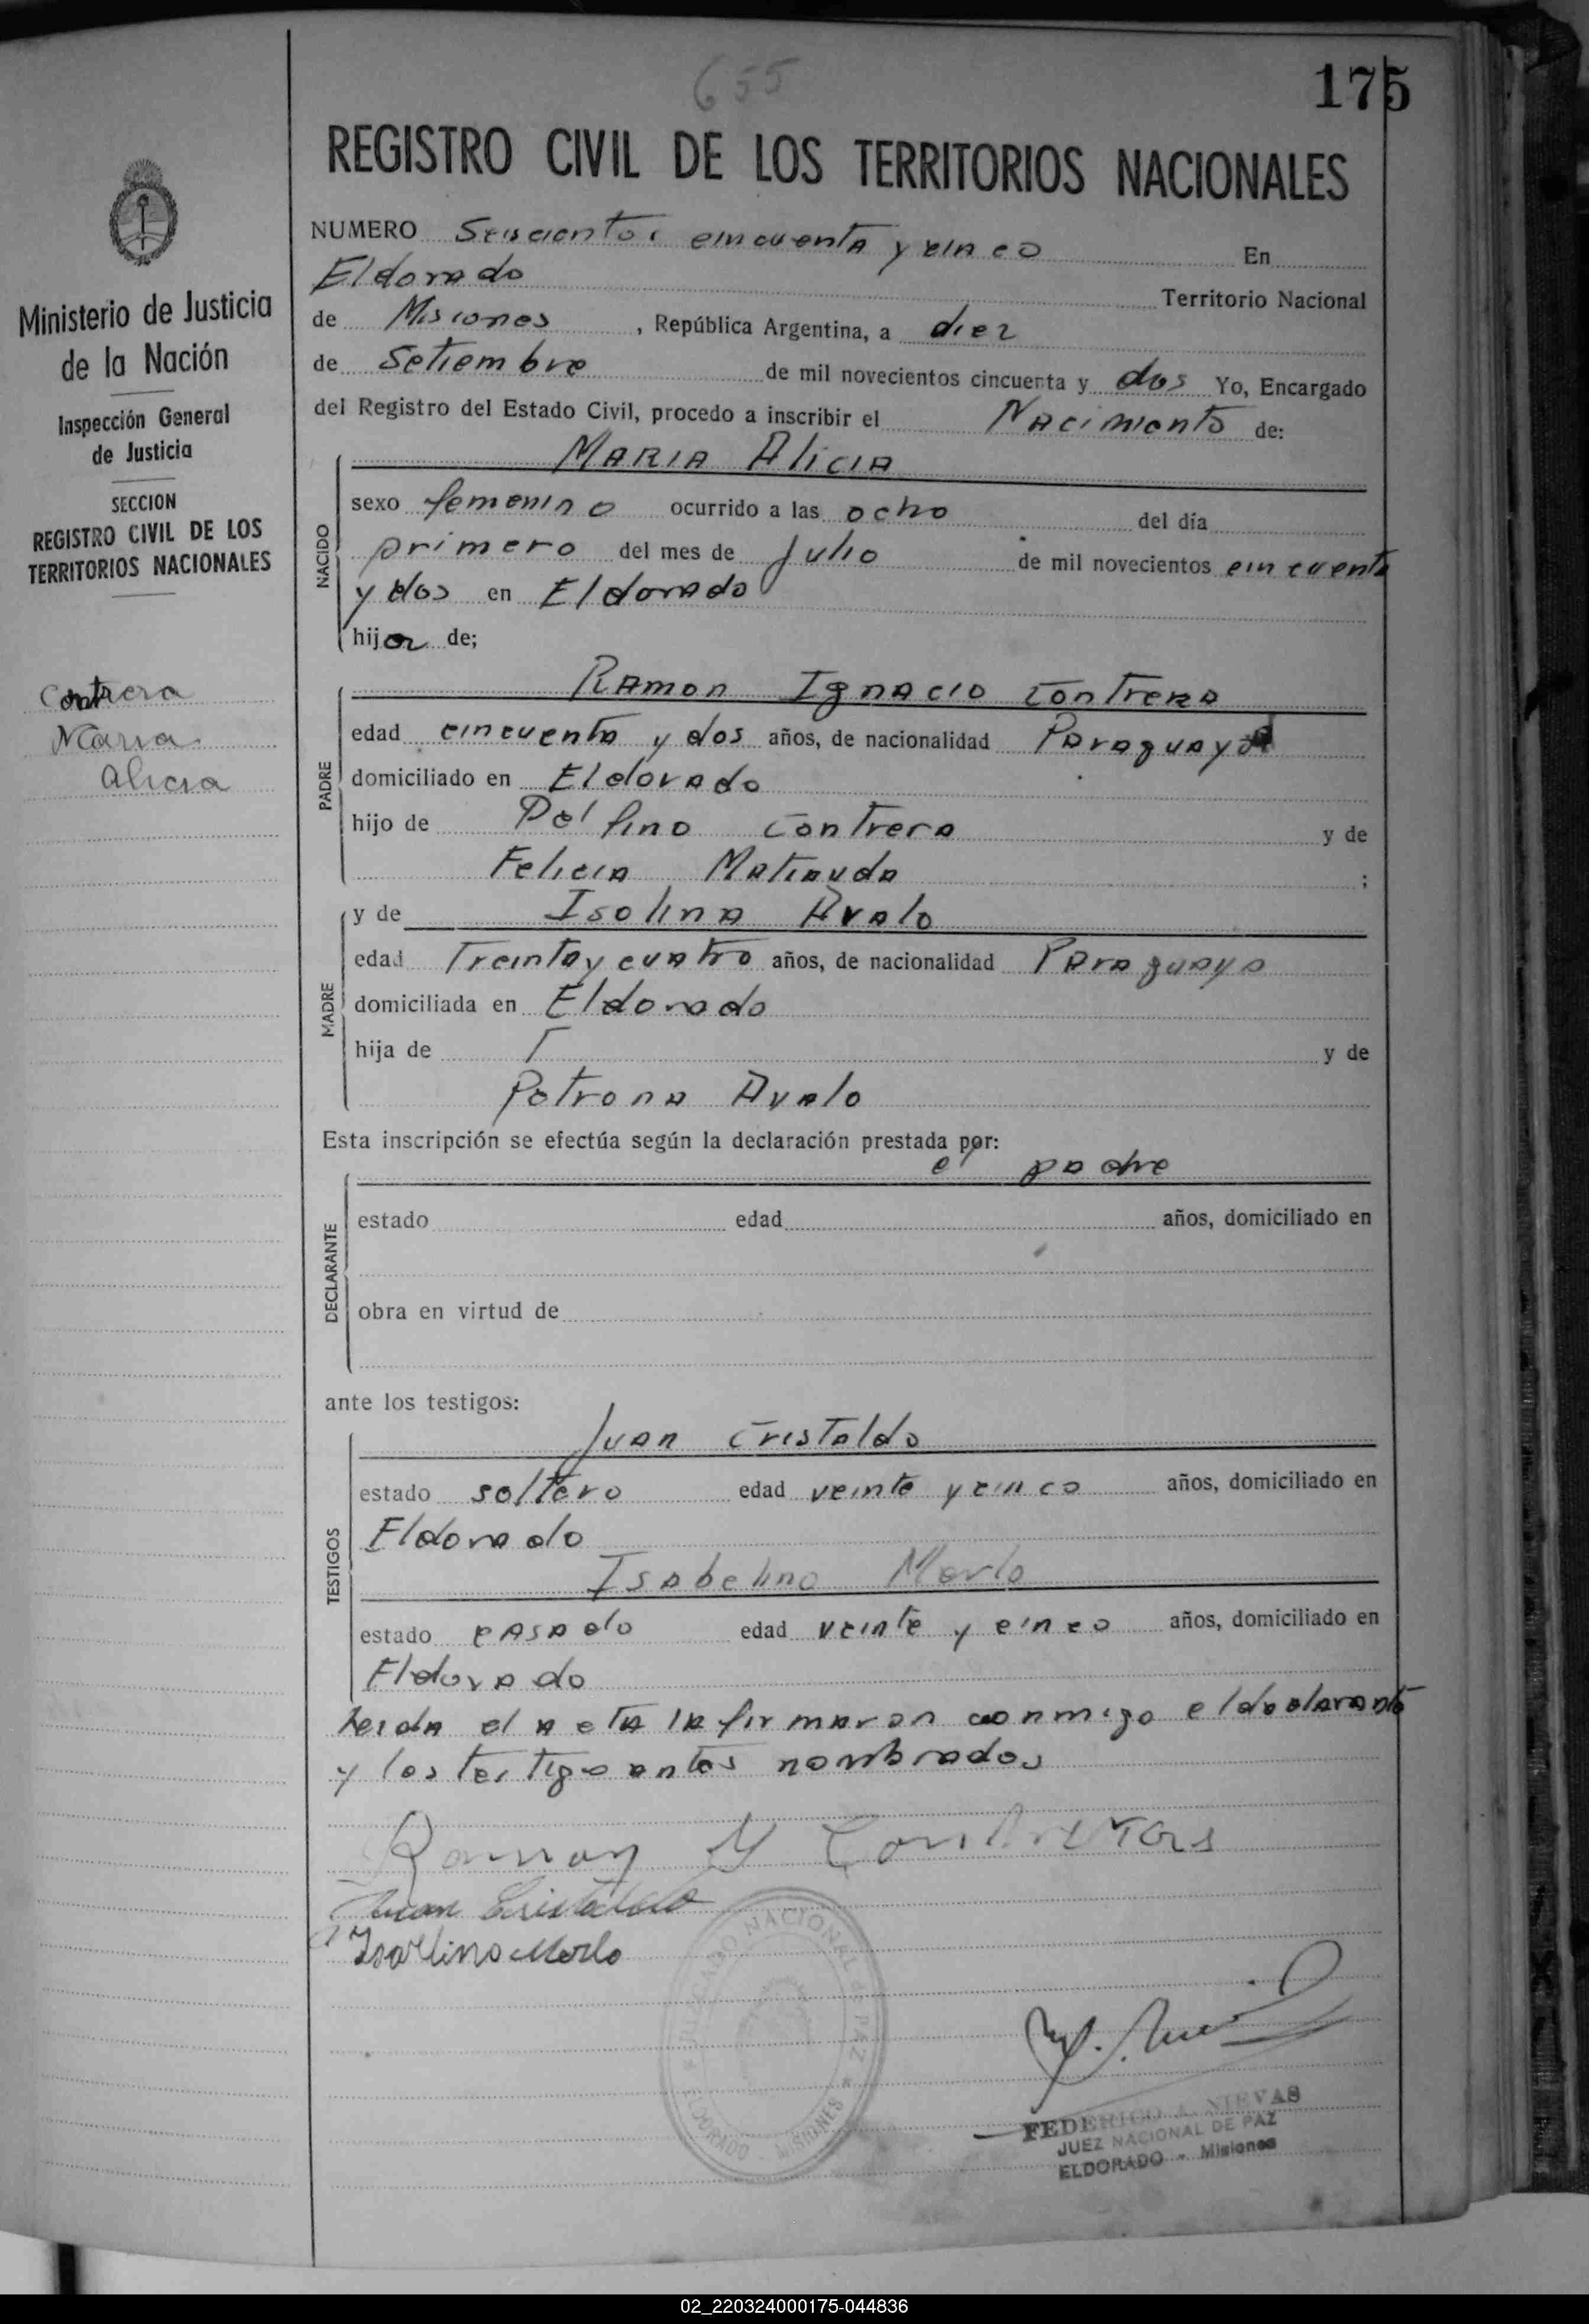 655
175
REGISTRO CIVIL DE LOS TERRITORIOS NACIONALES
Ministerio de Justicia
de la Nación
Inspección General
de Justicia
SECCION
REGISTRO CIVIL DE LOS
TERRITORIOS NACIONALES
Contrera
Maria
Alicia
NUMERO Seiscientos cincuenta y cinco En
Eldorado Territorio Nacional
de Misiones , República Argentina, a diez
de Setiembre de mil novecientos cincuenta y dos Yo, Encargado
del Registro del Estado Civil, procedo a inscribir el Nacimiento de:
NACIDO
MARIA AliciA
sexo femenino ocurrido a las ocho del día
primero del mes de Julio de mil novecientos cincuenta
y dos en Eldorado
hija de;
PADRE
Ramon Ignacio Contrera
edad cincuenta y dos años, de nacionalidad Paraguayo
domiciliado en Eldorado
hijo de Delfino Contrera y de
Felicia Matiauda ;
MADRE
y de Isolina Avalo
edad Treinta y cuatro años, de nacionalidad Paraguaya
domiciliada en Eldorado
hija de y de
Petrona Avalo
Esta inscripción se efectúa según la declaración prestada por:
el padre
DECLARANTE
estado edad años, domiciliado en
obra en virtud de
ante los testigos:
TESTIGOS
Juan Cristaldo
estado soltero edad veinte y cinco años, domiciliado en
Eldorado
Isabelino Merlo
estado casado edad veinte y cinco años, domiciliado en
Eldorado
Leida el acta la firmaron conmigo el declarante
y los testigo antes nombrados
Ramon Y Contreras
Juan Cristaldo
Isavelino Merlo
JUZGADO NACIONAL de PAZ
ELDORADO - MISIONES
FEDERICO A. NIEVAS
JUEZ NACIONAL DE PAZ
ELDORADO - Misiones
02_220324000175-044836